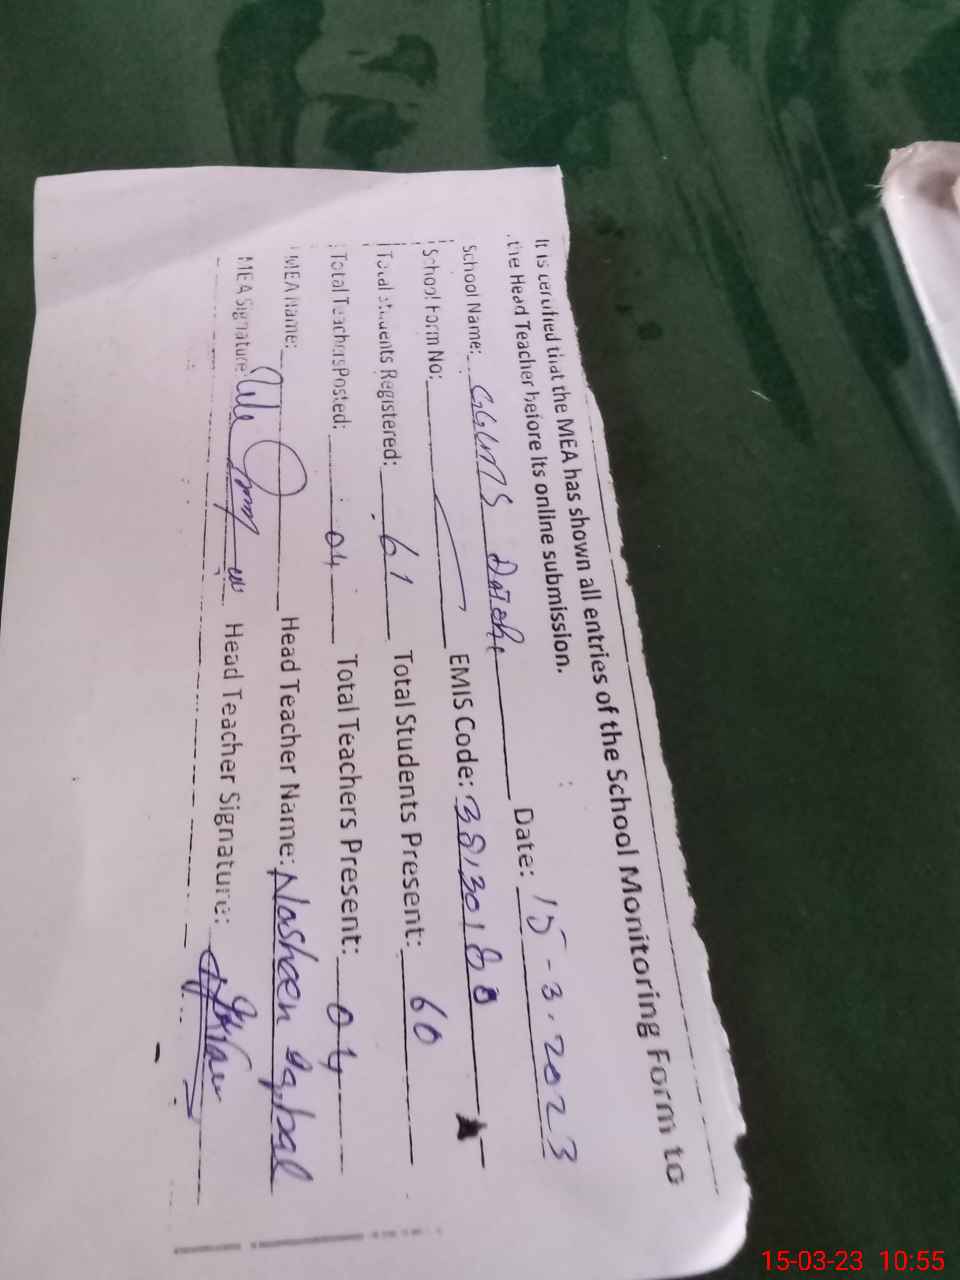 It is certified that the MEA has shown all entries of the School Monitoring Form to
the Head Teacher before its online submission.
School Name: GGMS Date: 15-3-2023
School Form No: EMIS Code: 38130180
Total Students Registered: 61 Total Students Present: 60
Total Teachers Posted: 04 Total Teachers Present: 04
MEA Name: Head Teacher Name: Nosheen Iqbal
MEA Signature: Head Teacher Signature:
15-03-23 10:55